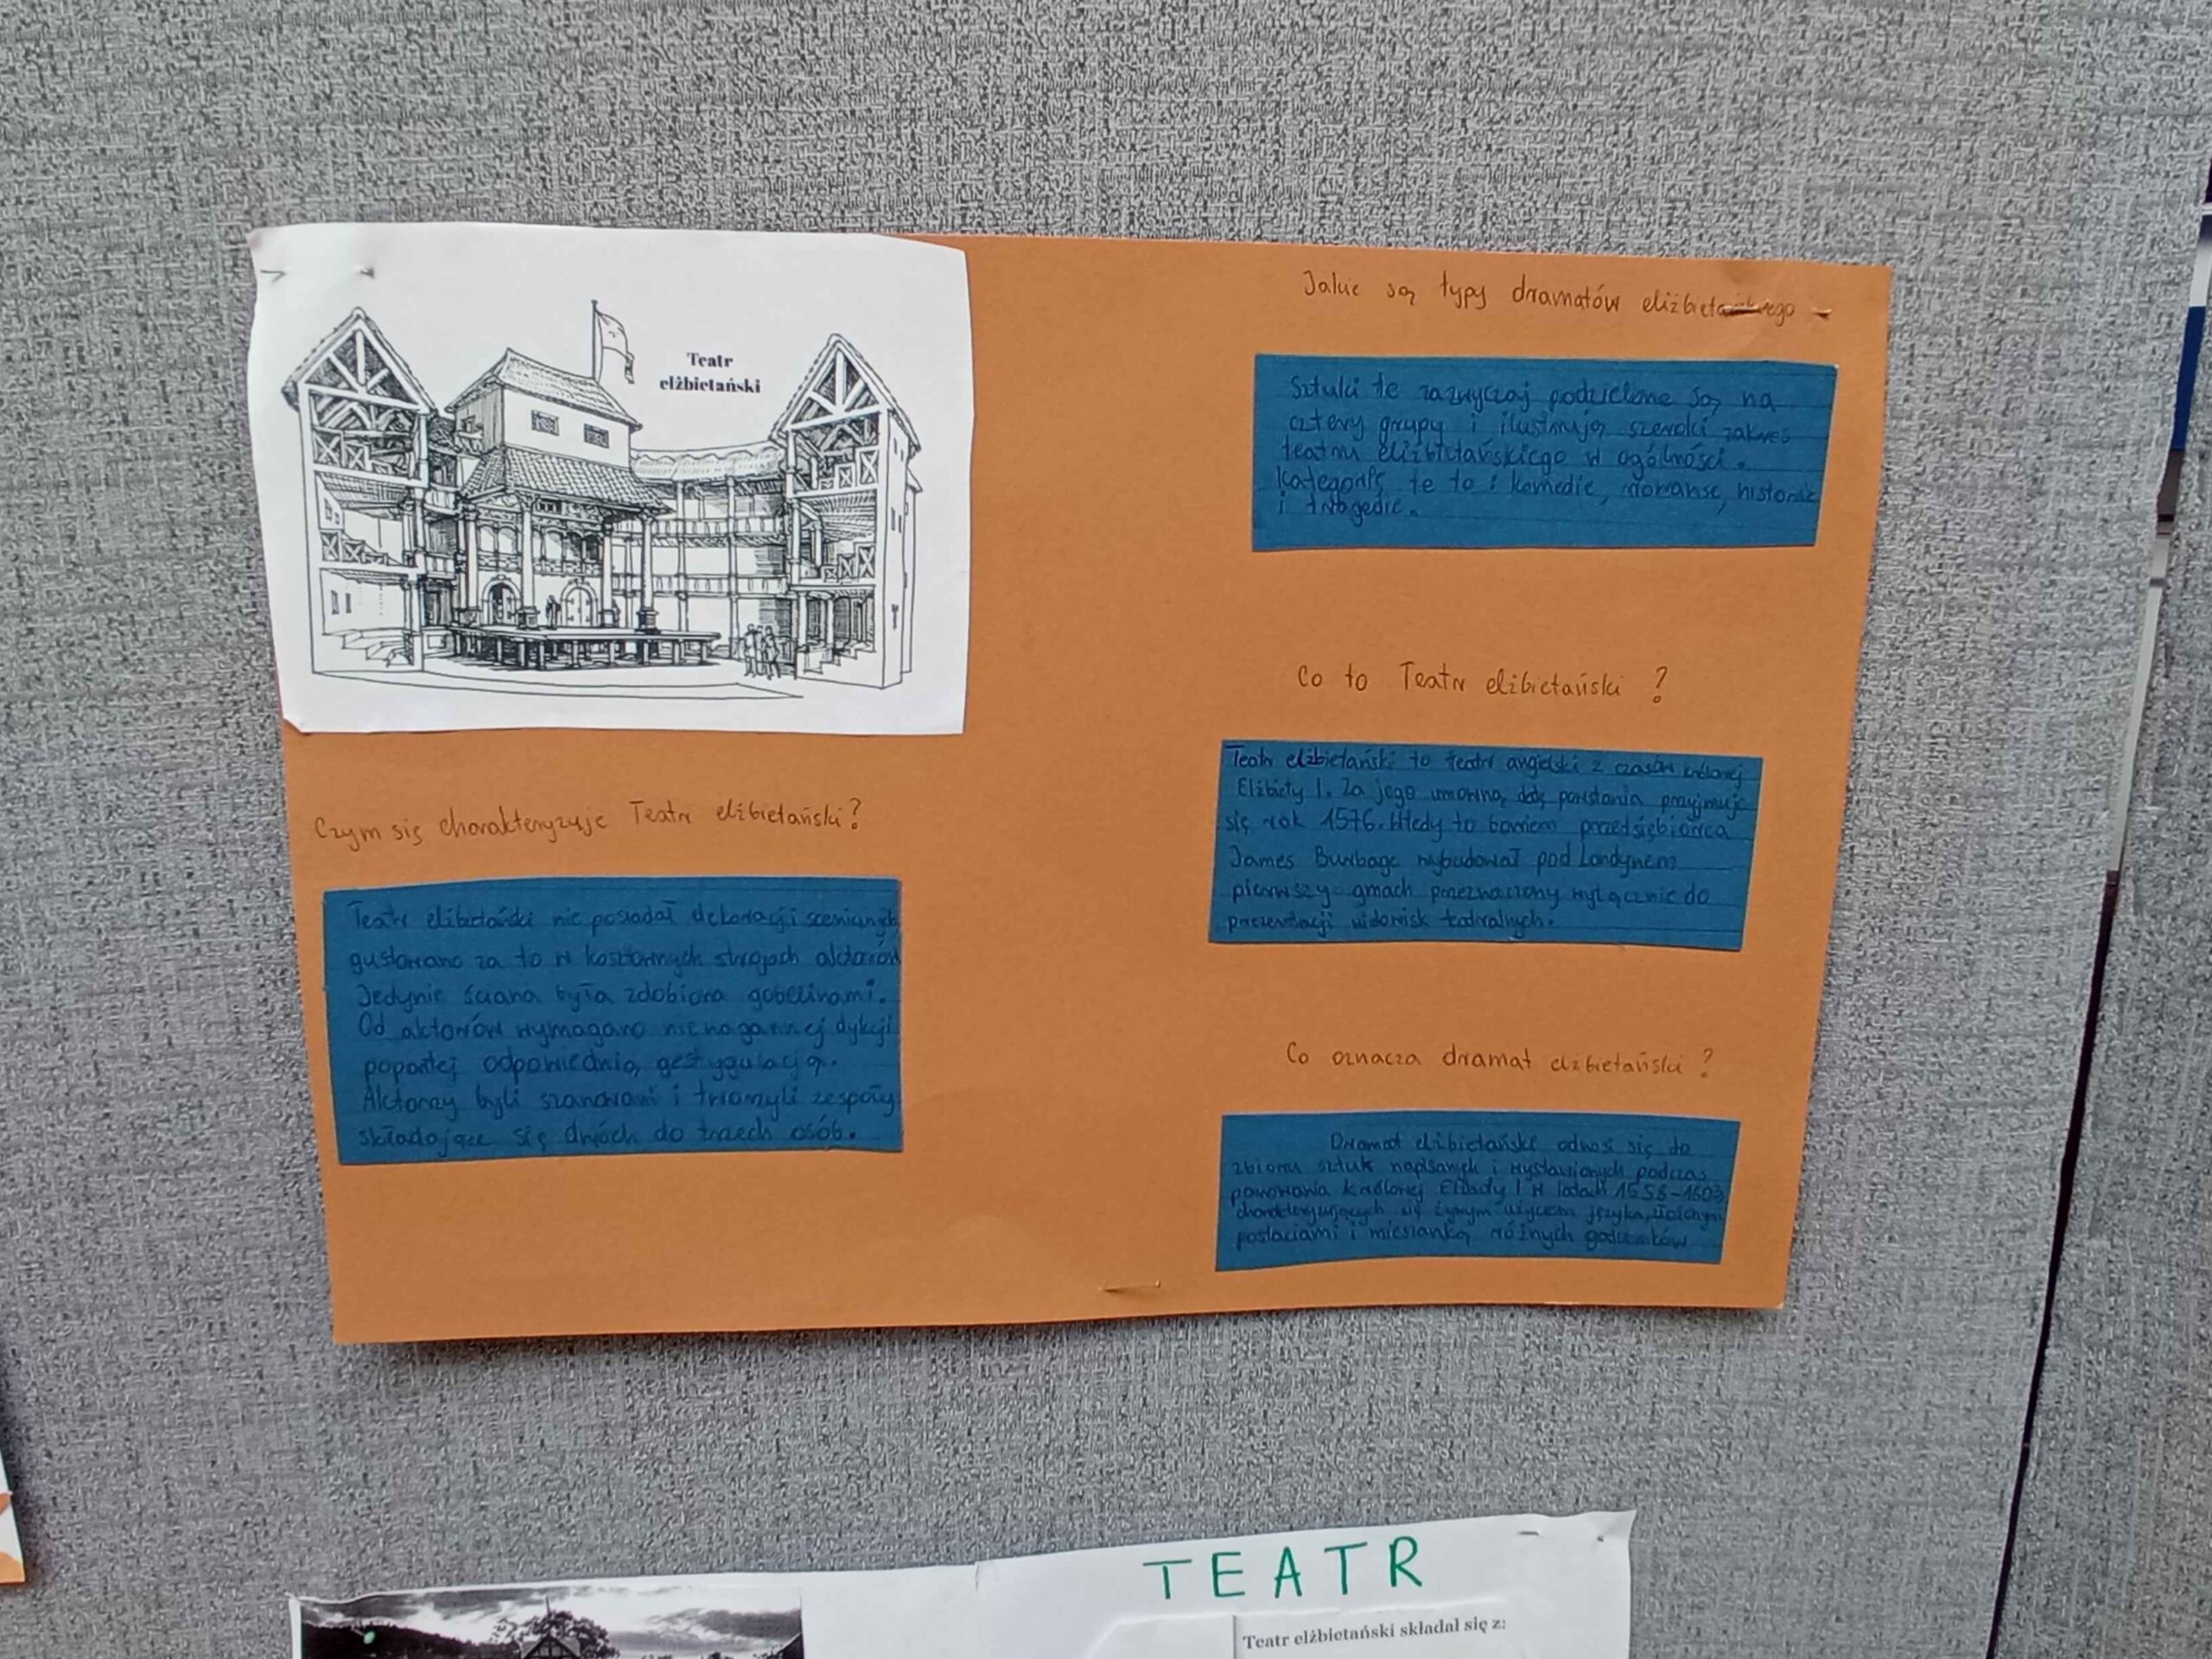 Teatr
elżbietański
Czym się charakteryzuje Teatr elżbietański?
Teatr elżbietański nie posiadał dekoracji scenicznych
gustowano za to w kosztownych strojach aktorów
Jedynie ściana była zdobiona gobelinami.
Od aktorów wymagano nienagannej dykcji
popartej odpowiednią gestygulacją.
Aktorzy byli i tworzyli zespoły
składające się dwóch do trzech osób.
Jakie są typy dramatów elizbietańskiego
Sztuki te zazwyczaj podzielone są na
cztery grupy i ilustrują szeroki zakres
teatru elizbietańskiego w ogólności.
Kategorie te to : komedie, romanse, historie
i tragedie.
Co to Teatr elżbietański ?
Teatr elżbietański to teatr angielski z czasów królowej
Elżbiety I. Za jego umowną datę powstania przyjmuje
się rok 1576. Wtedy to bowiem przedsiębiorca
James Burbage wybudował pod Londynem
pierwszy gmach przeznaczony wyłącznie do
prezentacji widowisk teatralnych.
Co oznacza dramat elżbietański ?
Dramat elżbietański odnosi się do
zbioru sztuk napisanych i wystawionych podczas
panowania królowej Elżbiety I w latach 1558-1603
charakteryzujących się żywym użyciem języka, złożonymi
postaciami i mieszanką różnych gatunków
TEATR
Teatr elżbietański składał się z: